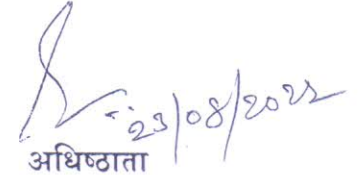 23/08/2022
अधिष्ठाता